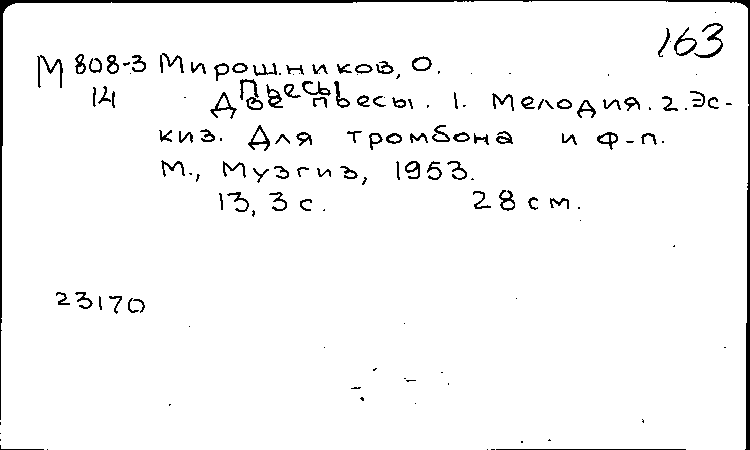 163
М 808-3 Мирошников, О.
14 Пьесы
Две пьесы. 1. Мелодия. 2. Эс-
киз. Для тромбона и ф-п.
М., Музгиз, 1953.
13, 3 с. 28 см.
23170